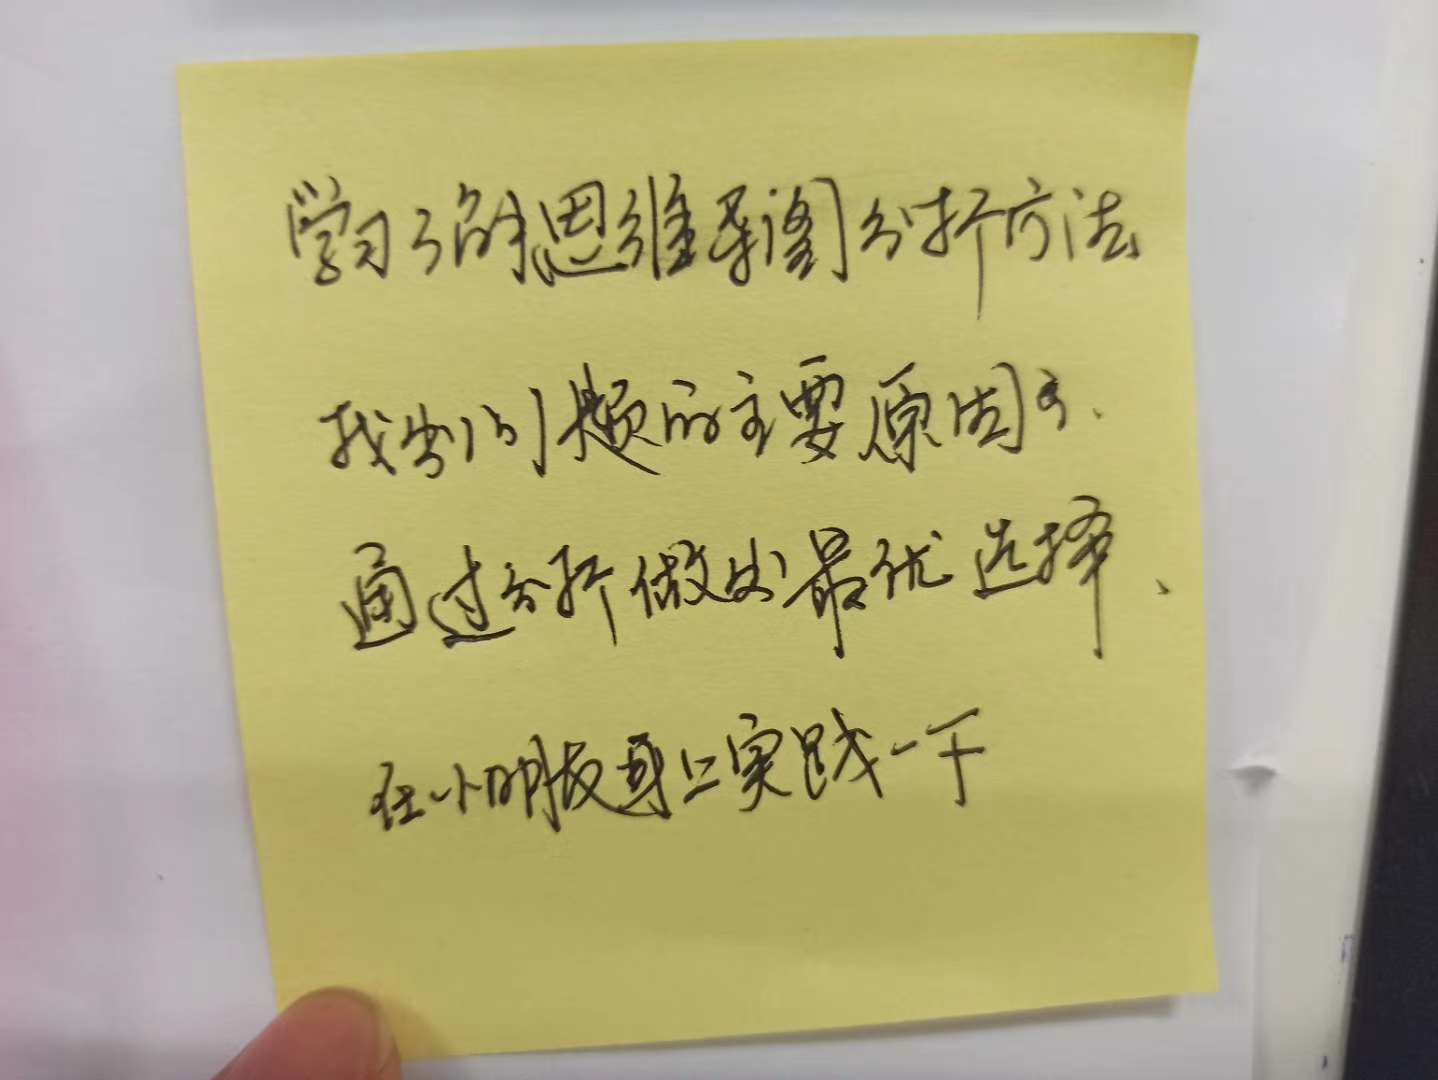 学习了的思维导图分析方法
找出问题的主要原因
通过分析做出最优选择、
在小明友身上实践一下